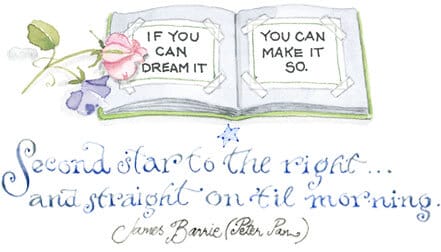 IF YOU
CAN
DREAM IT
YOU CAN
MAKE IT
SO.
Second star to the right...
and straight on 'til morning.
James Barrie (Peter Pan)